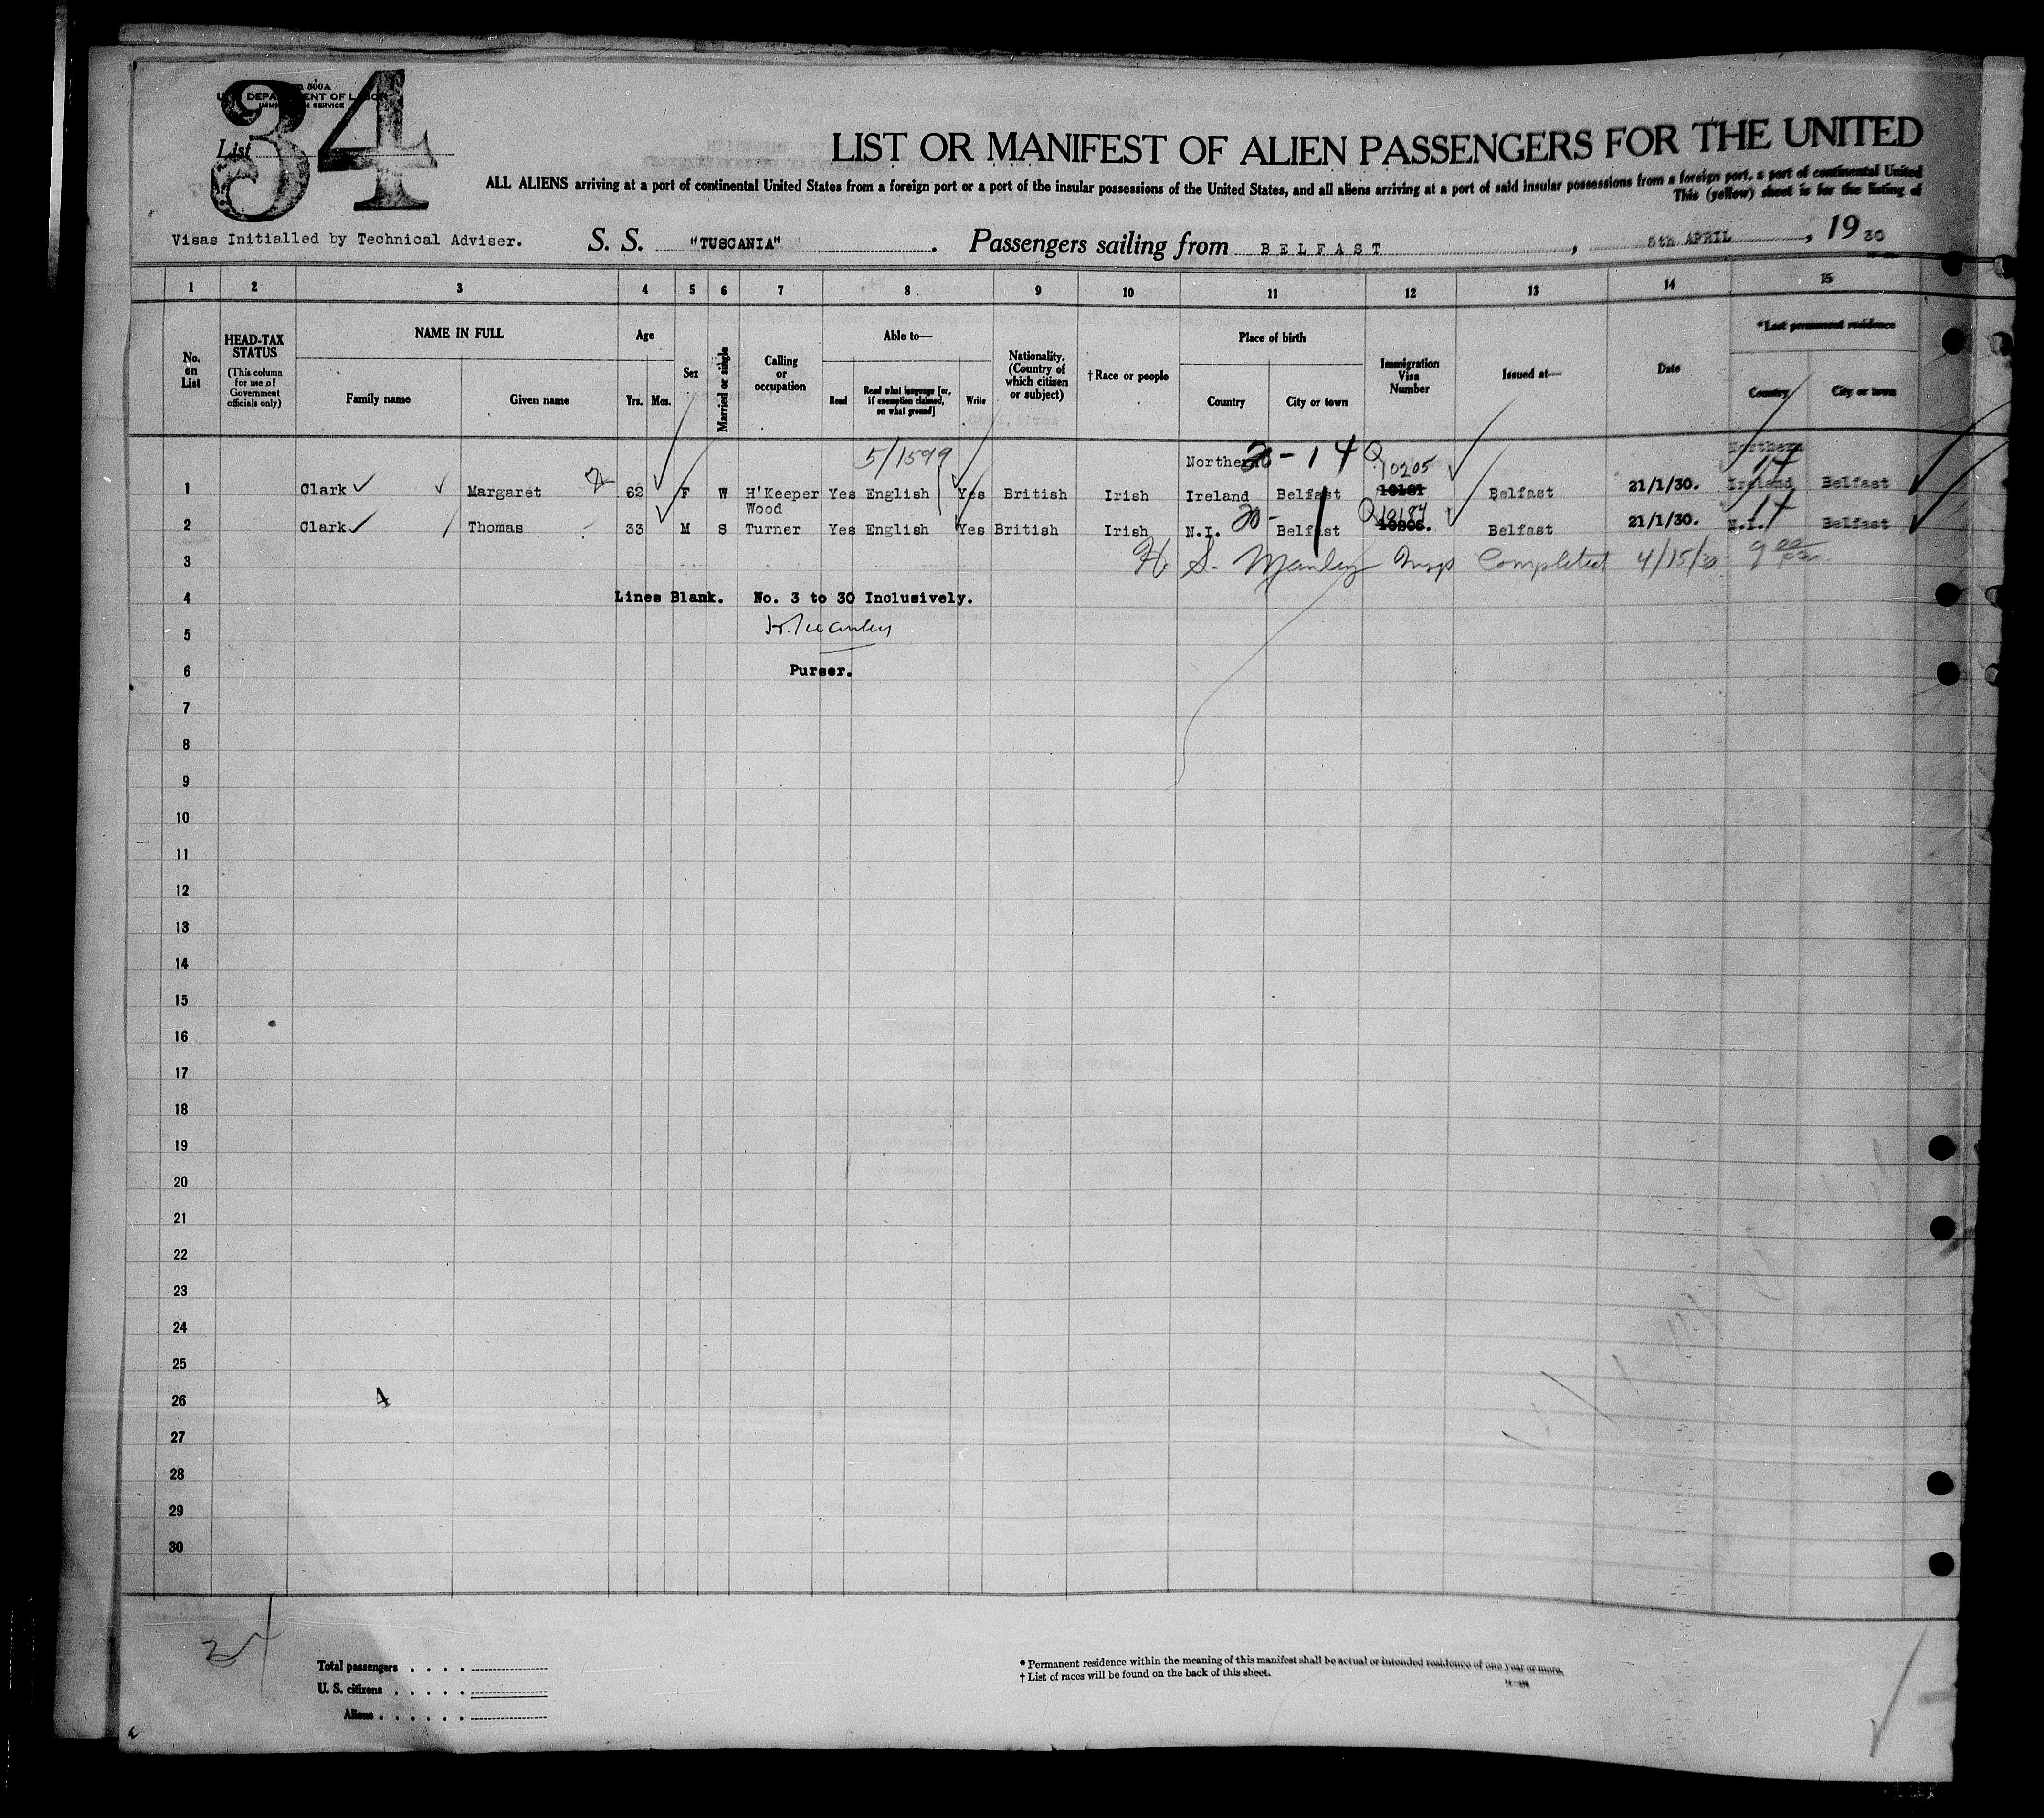 34
Form 500A
U. S. DEPARTMENT OF LABOR
IMMIGRATION SERVICE
List
LIST OR MANIFEST OF ALIEN PASSENGERS FOR THE UNITED
ALL ALIENS arriving at a port of continental United States from a foreign port or a port of the insular possessions of the United States, and all aliens arriving at a port of said insular possessions from a foreign port, a port of continental United
This (yellow) sheet is for the listing of
Visas Initialled by Technical Adviser. S. S. "TUSCANIA". Passengers sailing from BELFAST, 5th APRIL, 1930
1 2 3 4 5 6 7 8 9 10 11 12 13 14 15
No. on List
HEAD-TAX STATUS (This column for use of Government officials only)
NAME IN FULL
Family name Given name
Age
Yrs. Mos.
Sex
Married or single
Calling or occupation
Able to—
Read Read what language [or, if exemption claimed, on what ground] Write
Nationality. (Country of which citizen or subject)
†Race or people
Place of birth
Country City or town
Immigration Visa Number
Issued at—
Date
*Last permanent residence
Country City or town
5/1599
Northern 2-14 Q 10205 Northern 14
1 Clark Margaret 62 F W H'Keeper Yes English Yes British Irish Ireland Belfast Belfast 21/1/30. Ireland Belfast
Wood 20- Q 10184 14
2 Clark Thomas 33 M S Turner Yes English Yes British Irish N.I. Belfast Belfast 21/1/30. N.I. Belfast
3 H S. Manley Insp Completed 4/15/30 9 00
4 Lines Blank. No. 3 to 30 Inclusively.
5
6 Purser.
7
8
9
10
11
12
13
14
15
16
17
18
19
20
21
22
23
24
25
26 4
27
28
29
30
Total passengers
U. S. citizens
Aliens
* Permanent residence within the meaning of this manifest shall be actual or intended residence of one year or more.
† List of races will be found on the back of this sheet.